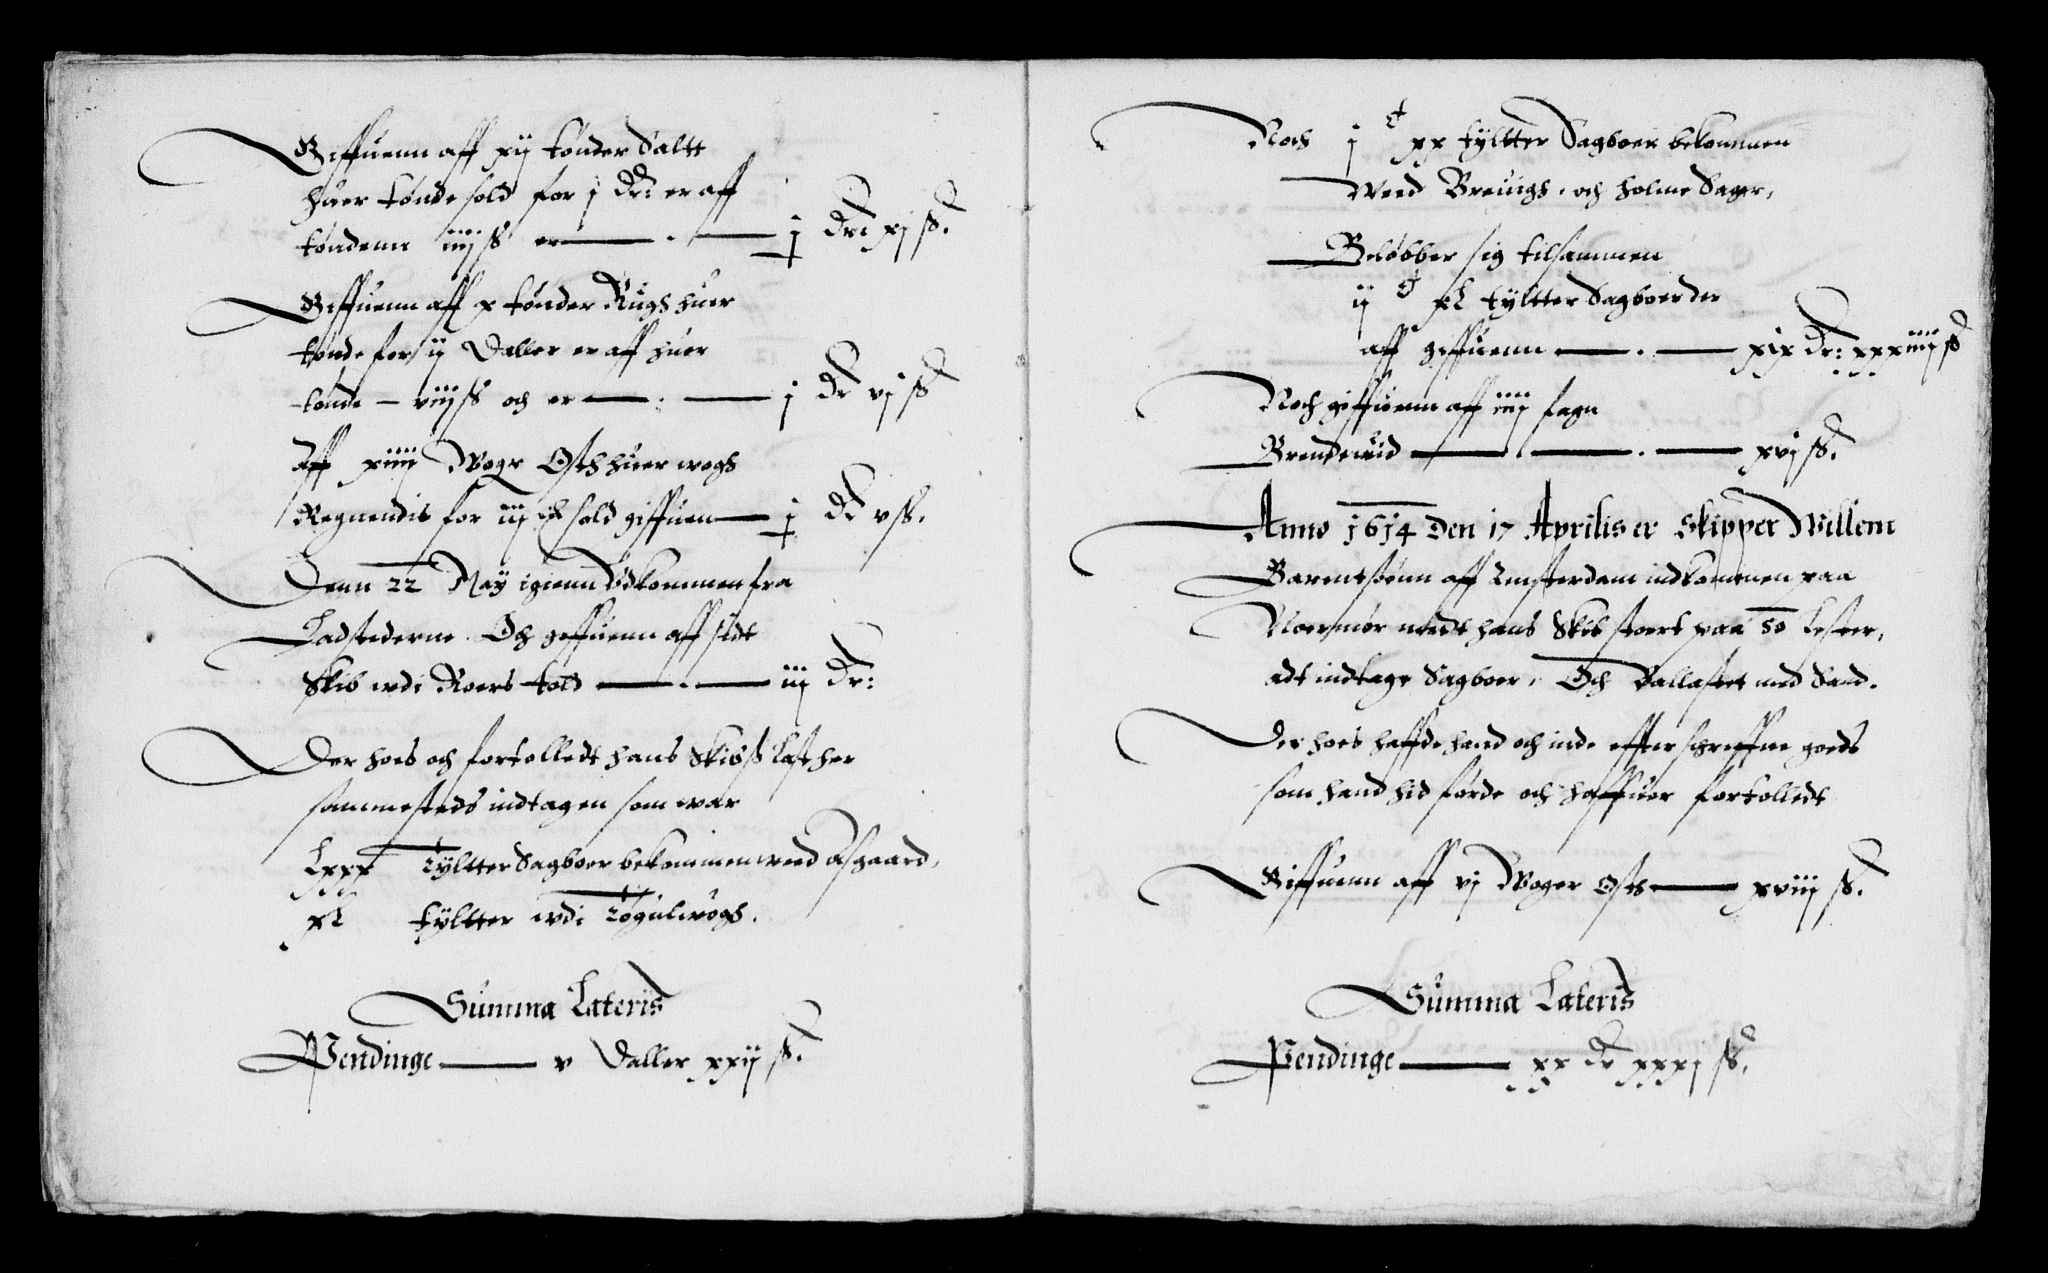 Giffuenn aff xij tønder Saltt
huer tønde sold for j Dr: er aff
tøndenn iiij ß er — . — j Dr: xj ß.
Giffuenn aff x tønder Rugh huer
tønde for ij Daller er aff huer
tønde — viij ß och er — . — j Dr vj ß
Aff xiiij Woger Osth huer wogh
Regnendis for iij sold giffuen — j Dr v ß.
Denn 22 Maÿ igienn Vdkommen fra
Ladstederne. Och geffuenn aff sidt
Skib udi Roers told — . — iij Dr:
Der hoes och fortolledt hans Skibß Last her
sammesteds indtagen som war
Lxxx Tÿltter Sagboer bekommen wed Asgaard,
xL tÿltter udi Togulwogh.
Summa Lateris
Pendinge — v Daller xxij ß.
Noch j C xx tÿltter Sagboer bekommen
Weed Breuigh. och Holme Sager,
Beløbber sig tilsammen
ij C xL tÿltter Sagboer der
aff geffuenn — . — xix Dr: xxxiiij ß
Noch giffuenn aff iiij fagn
Brendewid — . — . — xvj ß.
Anno 1614 Den 17 Aprilis er Skipper Willem
Barentsønn aff Amsterdam indkommen paa
Noermør medt hans Skib stoert paa 50 Lester,
adt indtage Sagboer, Och Ballastet med Sand.
Der hoes haffde hand och inde effterschreffne goeds
som hand hid førde och haffuer fortolledt
Giffuenn aff vj Woger Osth — xviij ß.
Summa Lateris
Pendinge — xx Dr xxxj ß.